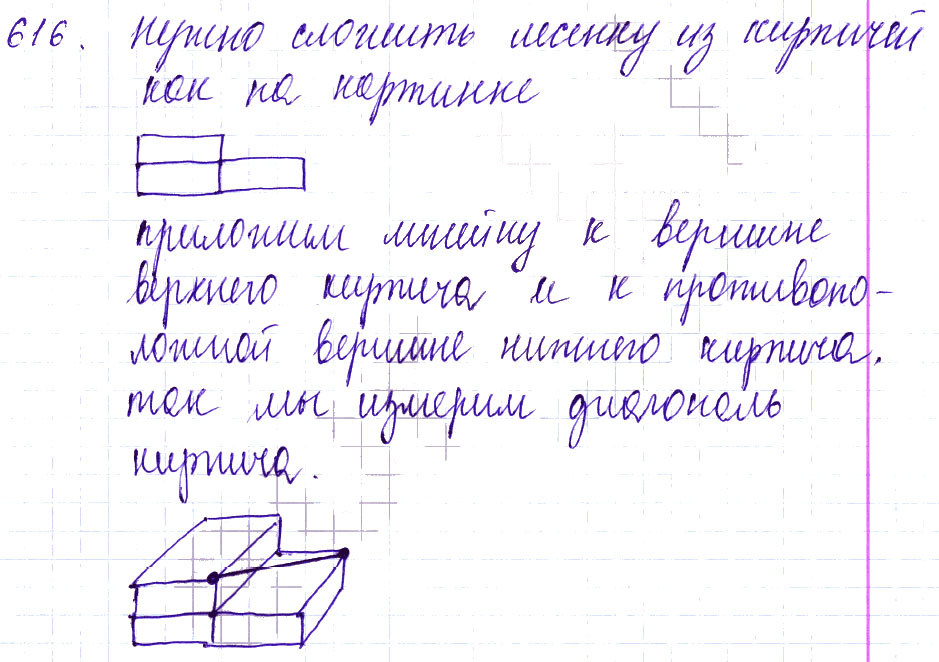 616. Нужно сложить лесенку из кирпичей
как на картинке
приложим линейку к вершине
верхнего кирпича и к противопо-
ложной вершине нижнего кирпича.
так мы измерим диагональ
кирпича.